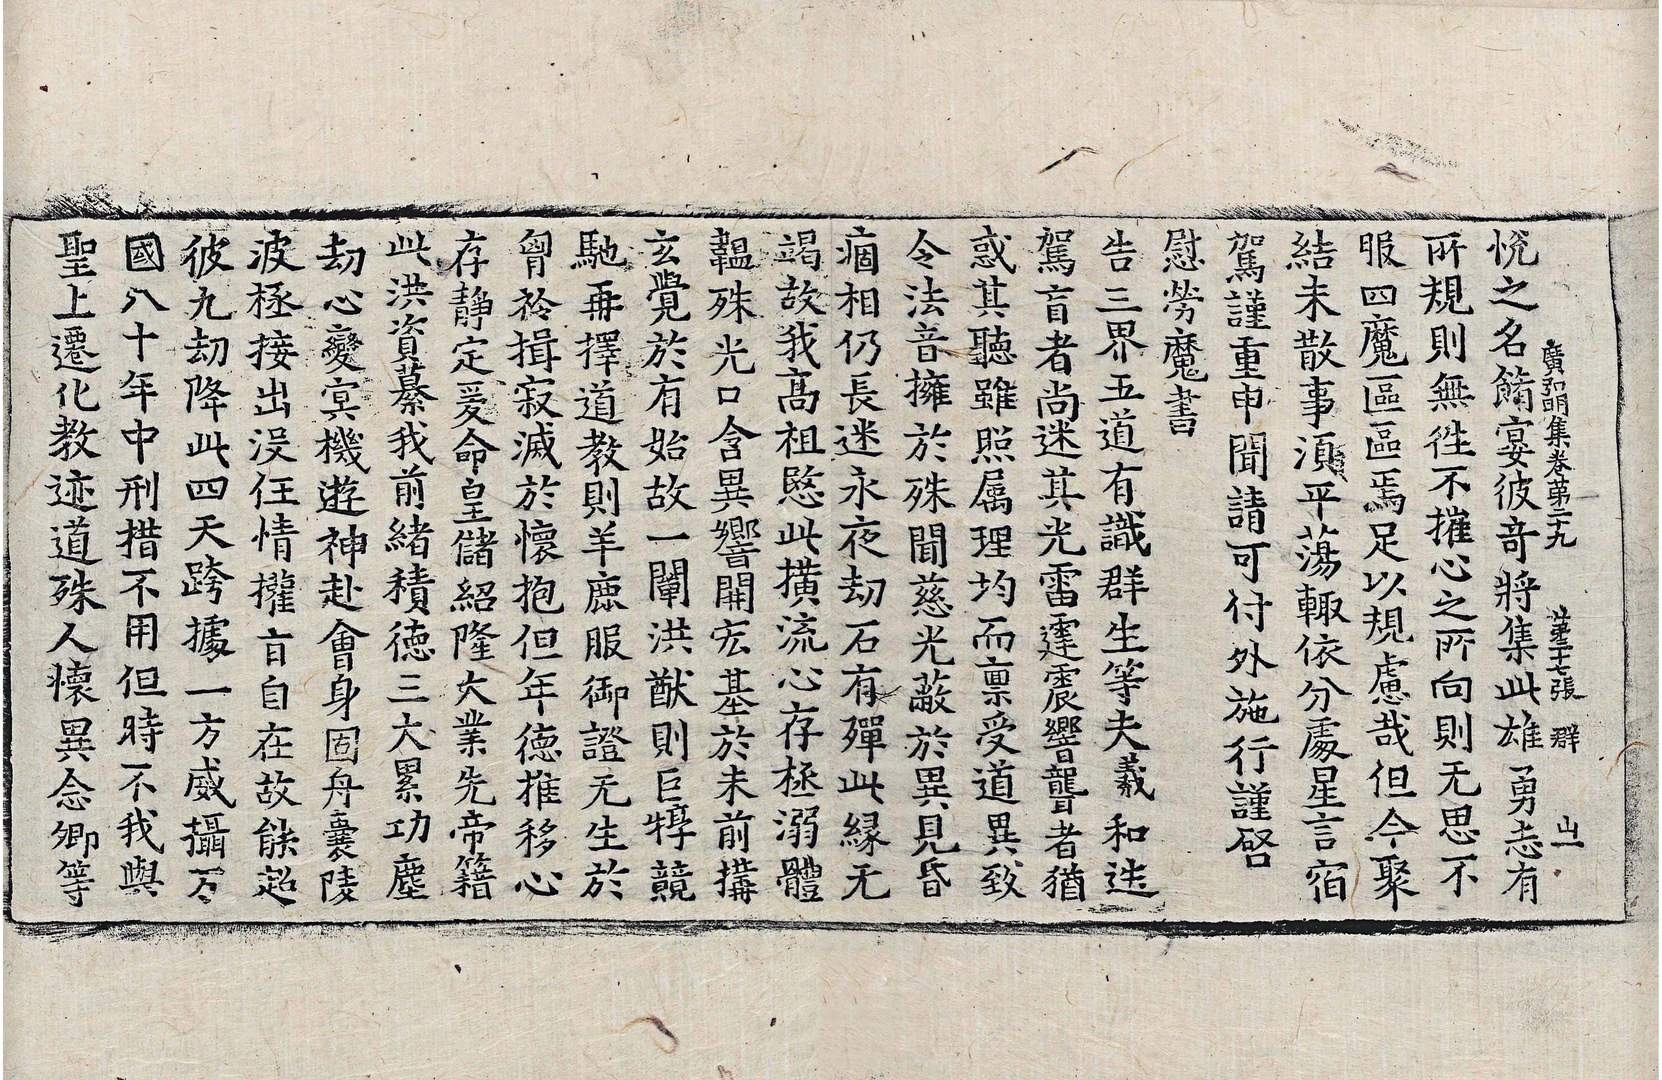 廣弘明集卷第二十九 第二十七張 群 山
悅之名餚宴彼奇將集此雄勇志有
所規則無徃不摧心之所向則无思不
服四魔區區焉足以規慮哉但今聚
結未散事湏平蕩輙依分處星言宿
駕謹重申聞請可付外施行謹啓
慰勞魔書
告三界五道有識群生等夫羲和迭
駕盲者尚迷其光雷霆震響聾者猶
惑其聽雖照属理均而禀受道異致
令法音擁於殊聞慈光蔽於異見昏
痼相仍長迷永夜劫石有殫此縁无
竭故我髙祖愍此撗流心存拯溺體
韞殊光口含異響開宏基於未前搆
玄覺於有始故一闡洪猷則巨㹀競
馳再擇道教則羊鹿服御證无生於
曾衿揖寂滅於懷抱但年德推移心
存靜定爰命皇儲紹隆大業先帝籍
此洪資慕我前緒積德三大累功塵
劫心變㝠機遊神赴會身固舟囊陵
波極接出没任情擢盲自在故能超
彼九劫降此四天跨據一方威攝万
國八十年中刑措不用但時不我與
聖上遷化教迹道殊人懷異念卿等